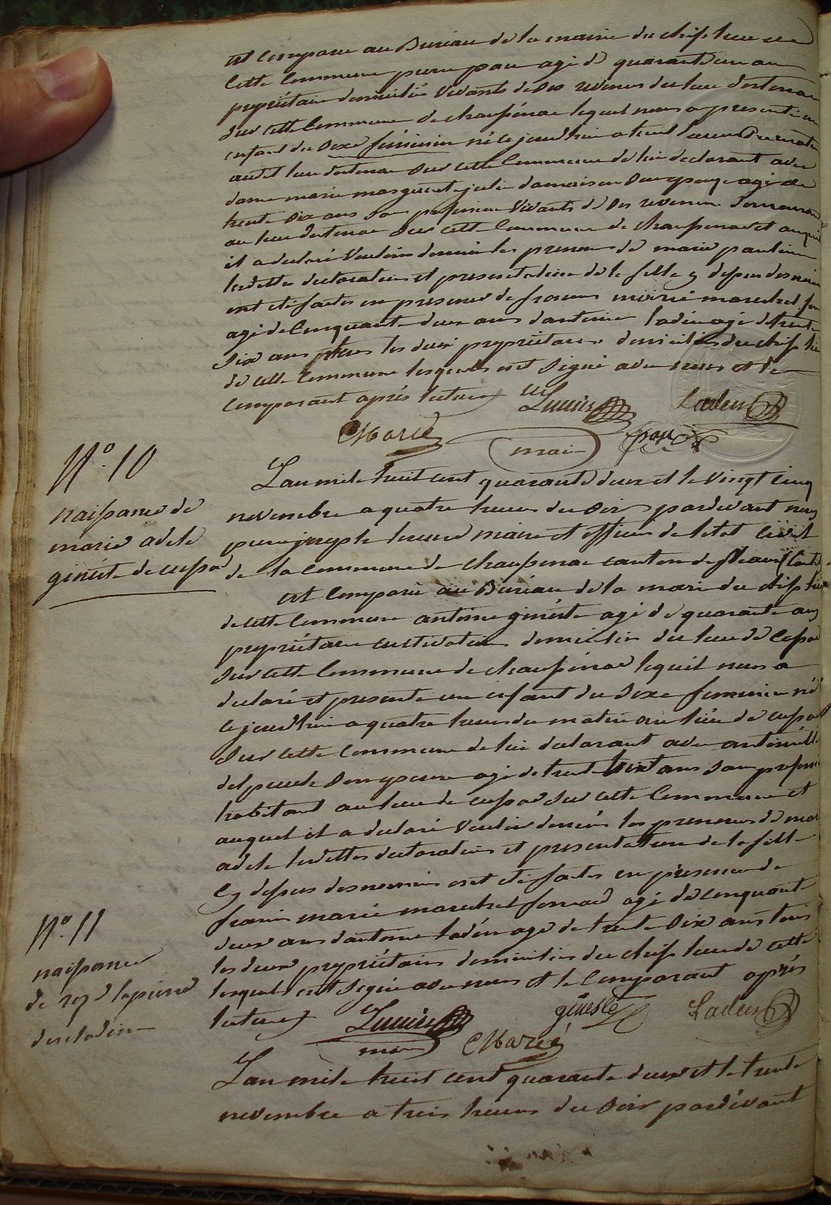 est comparu au Bureau de la mairie du chef lieu de
Cette Commune pierre pau agé de quarante un an
propriétaire domicilié Vivants de ses revenus du lieu
Sur cette Commune de chaussenac lequel nous a presenté un
enfant du Sexe féminin né ce jourd'hui a huit heures du matin
audit lieu Sur cette Commune de lui declarant avec
dame marie marguerite julie Son epouse agé de
trente Six ans Sans profession Vivants de Ses revenus
au lieu Sur cette Commune de chaussenac et auquel
il a declaré Vouloir donner les prenoms de marie pauline
lesdittes declaration et presentation de la fille cy dessus denommé
ont été faites en presence de marié marechal ferrand
agé de Cinquante deux ans d'antoine ladén agé de trente
Six ans tous les deux propriétaires domiciliés du chef lieu
de cette Commune lesquels ont Signé avec nous et le
Comparant après lecture
Ladén
Marié
maire
N° 10
naissance de
marie adele
ginéste de
L'an mil huit cent quarante deux et le vingt cinq
novembre a quatre heures du Soir pardevant nous
pierre joseph maire et officier de l'etat Civil
de la Commune de chaussenac canton de pleaux
est Comparu au Bureau de la mairie du chef lieu
de cette Commune antoine ginéste agé de quarante ans
propriétaire cultivateur domicilié du lieu de
Sur cette Commune de chaussenac lequel nous a
declaré et presenté un enfant du Sexe feminin né
ce jourd'hui a quatre heures du matin au lieu de
Sur cette Commune de lui declarant avec
Son epouse agé de trente Six ans Sans profession
habitant au lieu de Sur cette Commune et
auquel il a declaré Vouloir donner les prenoms de marie
adele lesdittes declaration et presentation de la fille
cy dessus denommé ont été faites en presence de
marié marechal ferrand agé de cinquante
deux ans d'antoine ladén agé de trente Six ans tous
les deux propriétaires domiciliés du chef lieu de cette
lesquels ont Signé avec nous et le Comparant après
lecture
ginéste
Ladén
maire
Marié
N° 11
naissance
de
L'an mil huit cent quarante deux et le trente
novembre a trois heures du Soir pardevant